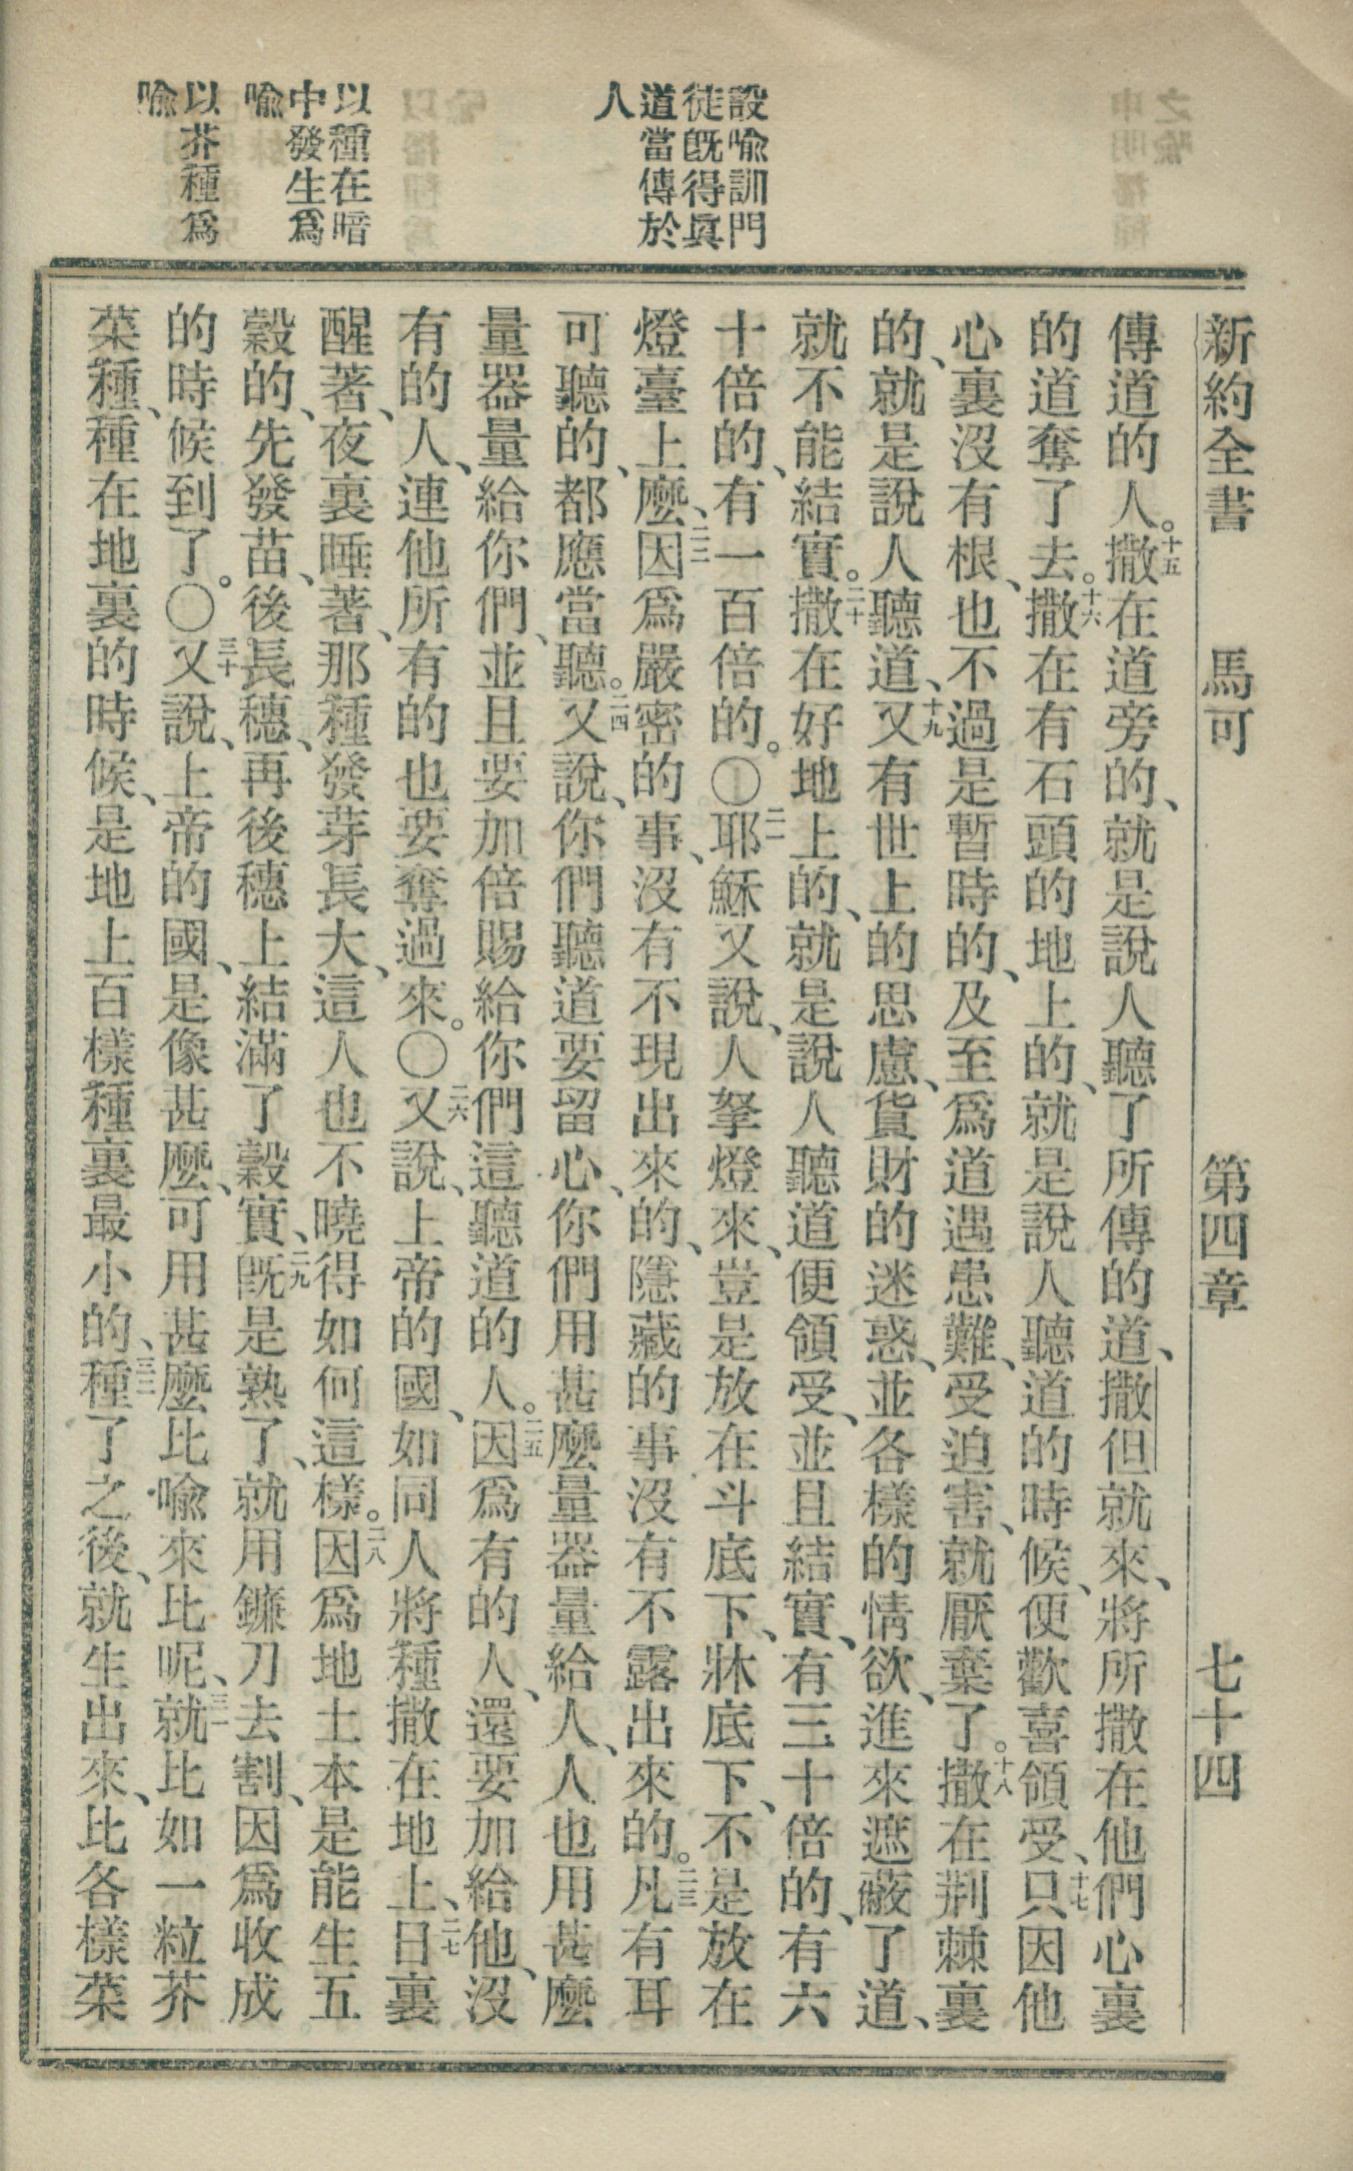 新約全書 馬可 第四章 七十四
設喻訓門
徒既得眞
道當傳於
人
以種在暗
中發生爲
喻
以芥種爲
喻
傳道的人。十五撒在道旁的、就是說人聽了所傳的道、撒但就來、將所撒在他們心裏
的道奪了去。十六撒在有石頭的地上的、就是說人聽道的時候、便歡喜領受、十七只因他
心裏沒有根、也不過是暫時的、及至爲道遇患難、受迫害、就厭棄了。十八撒在荆棘裏
的、就是說人聽道、十九又有世上的思慮、貨財的迷惑、並各樣的情欲、進來遮蔽了道、
就不能結實。二十撒在好地上的、就是說人聽道便領受、並且結實、有三十倍的、有六
十倍的、有一百倍的。〇二一耶穌又說、人拏燈來、豈是放在斗底下、牀底下、不是放在
燈臺上麼、二二因爲嚴密的事、沒有不現出來的、隱藏的事沒有不露出來的。二三凡有耳
可聽的、都應當聽。二四又說、你們聽道要留心、你們用甚麼量器量給人、人也用甚麼
量器量給你們、並且要加倍賜給你們這聽道的人。二五因爲有的人、還要加給他、沒
有的人、連他所有的也要奪過來。〇二六又說、上帝的國、如同人將種撒在地上、二七日裏
醒著、夜裏睡著、那種發芽長大、這人也不曉得如何這樣。二八因爲地土本是能生五
穀的、先發苗、後長穗、再後穗上結滿了穀實、二九既是熟了、就用鐮刀去割、因爲收成
的時候到了。〇三十又說、上帝的國、是像甚麼、可用甚麼比喻來比呢、三一就比如一粒芥
菜種、種在地裏的時候、是地上百樣種裏最小的、三二種了之後、就生出來、比各樣菜